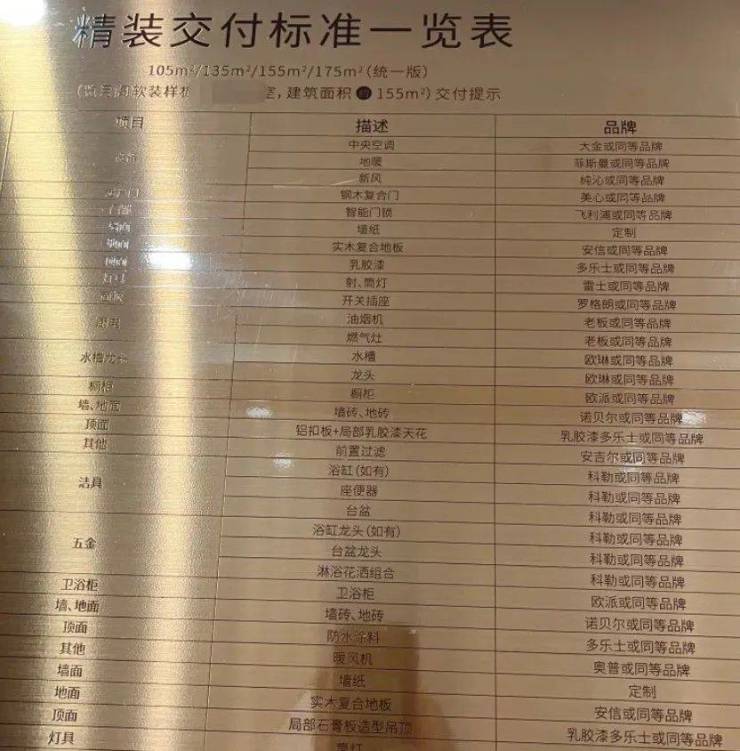 精装交付标准一览表
105m²/135m²/155m²/175m²(统一版)
软装样板 室,建筑面积 155m²)交付提示
项目 描述 品牌
中央空调 大金或同等品牌
地暖 菲斯曼或同等品牌
新风 纯沁或同等品牌
钢木复合门 美心或同等品牌
智能门锁 飞利浦或同等品牌
墙纸 定制
实木复合地板 安信或同等品牌
乳胶漆 多乐士或同等品牌
射、筒灯 雷士或同等品牌
开关插座 罗格朗或同等品牌
油烟机 老板或同等品牌
燃气灶 老板或同等品牌
水槽龙头 水槽 欧琳或同等品牌
龙头 欧琳或同等品牌
橱柜 橱柜 欧派或同等品牌
墙、地面 墙砖、地砖 诺贝尔或同等品牌
顶面 铝扣板+局部乳胶漆天花 乳胶漆多乐士或同等品牌
其他 前置过滤 安吉尔或同等品牌
洁具 浴缸(如有) 科勒或同等品牌
座便器 科勒或同等品牌
台盆 科勒或同等品牌
五金 浴缸龙头(如有) 科勒或同等品牌
台盆龙头 科勒或同等品牌
淋浴花洒组合 科勒或同等品牌
卫浴柜 卫浴柜 欧派或同等品牌
墙、地面 墙砖、地砖 诺贝尔或同等品牌
顶面 防水涂料 多乐士或同等品牌
其他 暖风机 奥普或同等品牌
墙面 墙纸 定制
地面 实木复合地板 安信或同等品牌
顶面 局部石膏板造型吊顶 乳胶漆多乐士或同等品牌
灯具